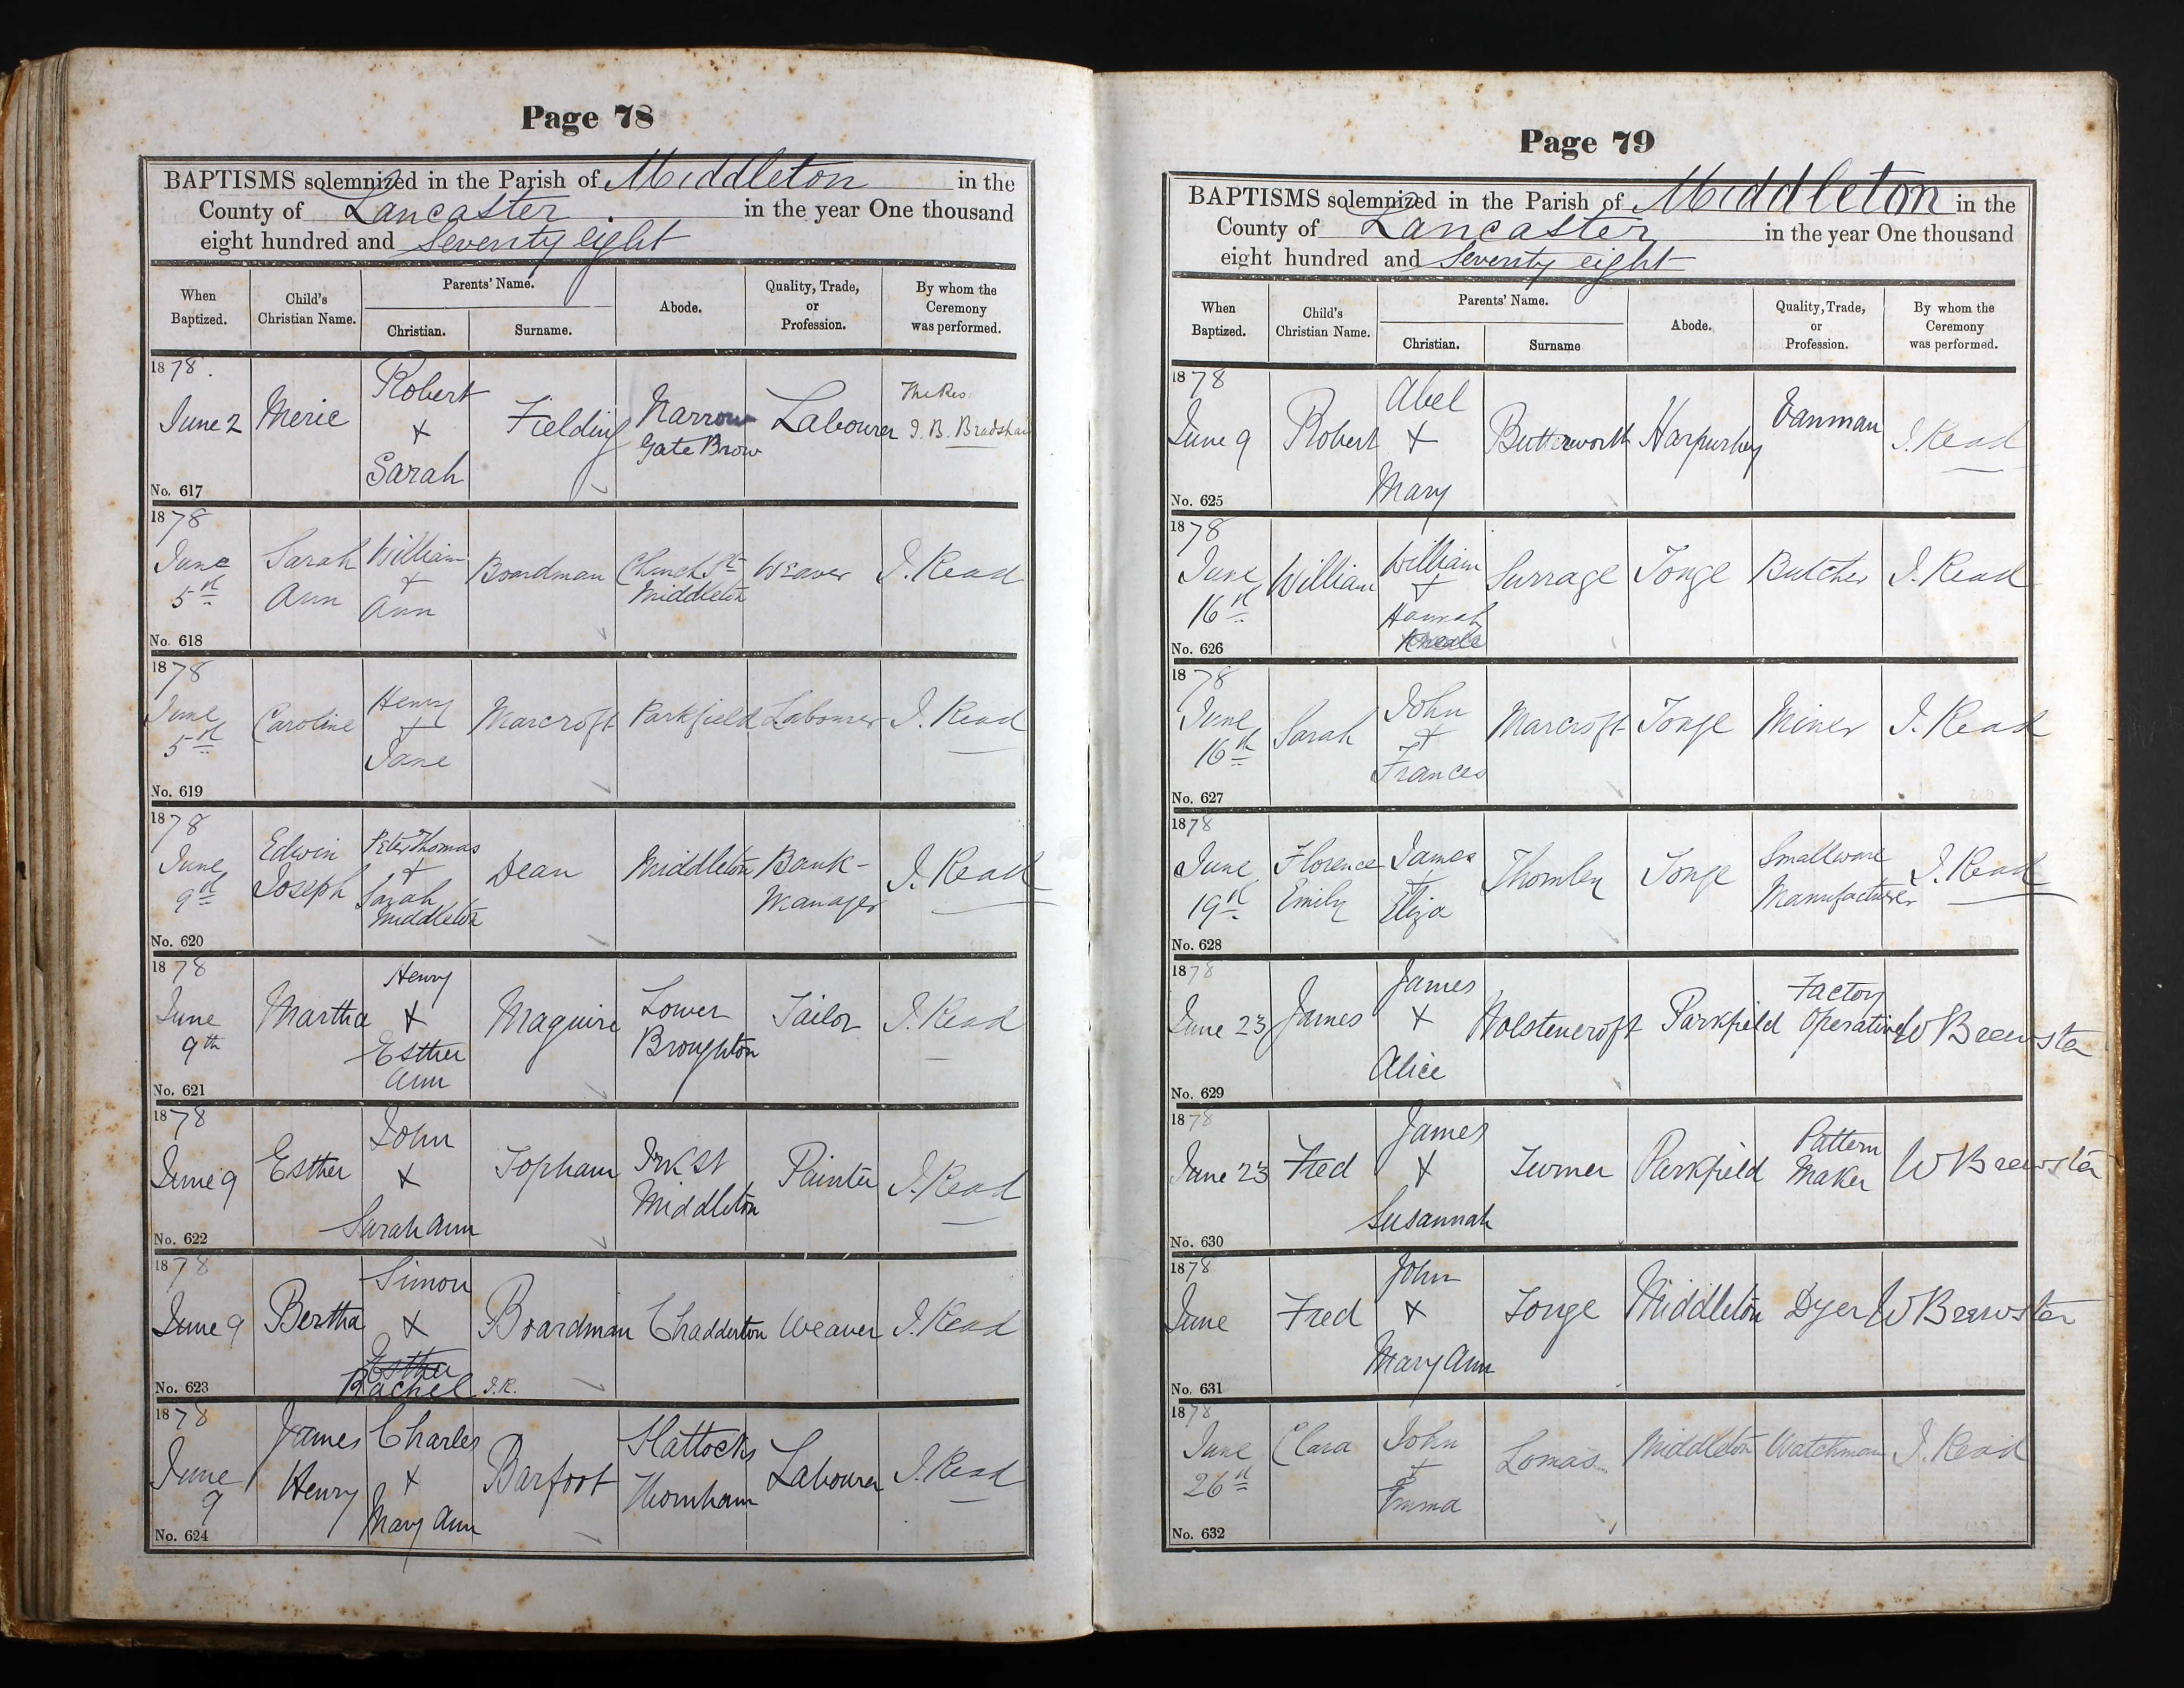 Page 78
BAPTISMS solemnized in the Parish of Middleton in the
County of Lancaster in the year One thousand
eight hundred and Seventy eight
When Baptized. Child's Christian Name. Parents' Name. Christian. Surname. Abode. Quality, Trade, or Profession. By whom the Ceremony was performed.
1878. June 2 Merie Robert + Sarah Fielding Narrow Gate Brow Labourer The Rev. J. B. Bradshaw
No. 617
1878 June 5th Sarah Ann William + Ann Boardman Church St Middleton Weaver J. Read
No. 618
1878 June 5th Caroline Henry + Jane Marcroft Parkfield Labourer J. Read
No. 619
1878 June 9th Edwin Joseph Peter Thomas + Sarah Middleton Dean Middleton Bank-Manager J. Read
No. 620
1878 June 9th Martha Henry + Esther Ann Maguire Lower Broughton Tailor J. Read
No. 621
1878 June 9 Esther John + Sarah Ann Topham St Middleton Painter J. Read
No. 622
1878 June 9 Bertha Simon + Esther Rachel J.R. Boardman Chadderton Weaver J. Read
No. 623
1878 June 9 James Henry Charles + Mary Ann Barfoot Slattocks Thornham Labourer J. Read
No. 624
Page 79
BAPTISMS solemnized in the Parish of Middleton in the
County of Lancaster in the year One thousand
eight hundred and Seventy eight
When Baptized. Child's Christian Name. Parents' Name. Christian. Surname Abode. Quality, Trade, or Profession. By whom the Ceremony was performed.
1878 June 9 Robert Abel + Mary Butterworth Harpurhey Vanman J. Read
No. 625
1878 June 16th William William + Hannah Surrage Tonge Butcher J. Read
No. 626
1878 June 16th Sarah John + Frances Marcroft Tonge Miner J. Read
No. 627
1878 June 19th Florence Emily James + Eliza Thornley Tonge Smallware Manufacturer J. Read
No. 628
1878 June 23 James James + Alice Wolstencroft Parkfield Factory Operative W Brewster
No. 629
1878 June 23 Fred James + Susannah Turner Parkfield Pattern Maker W Brewster
No. 630
1878 June Fred John + Mary Ann Tonge Middleton Dyer W Brewster
No. 631
1878 June 26th Clara John + Emma Lomas Middleton Watchman J. Read
No. 632